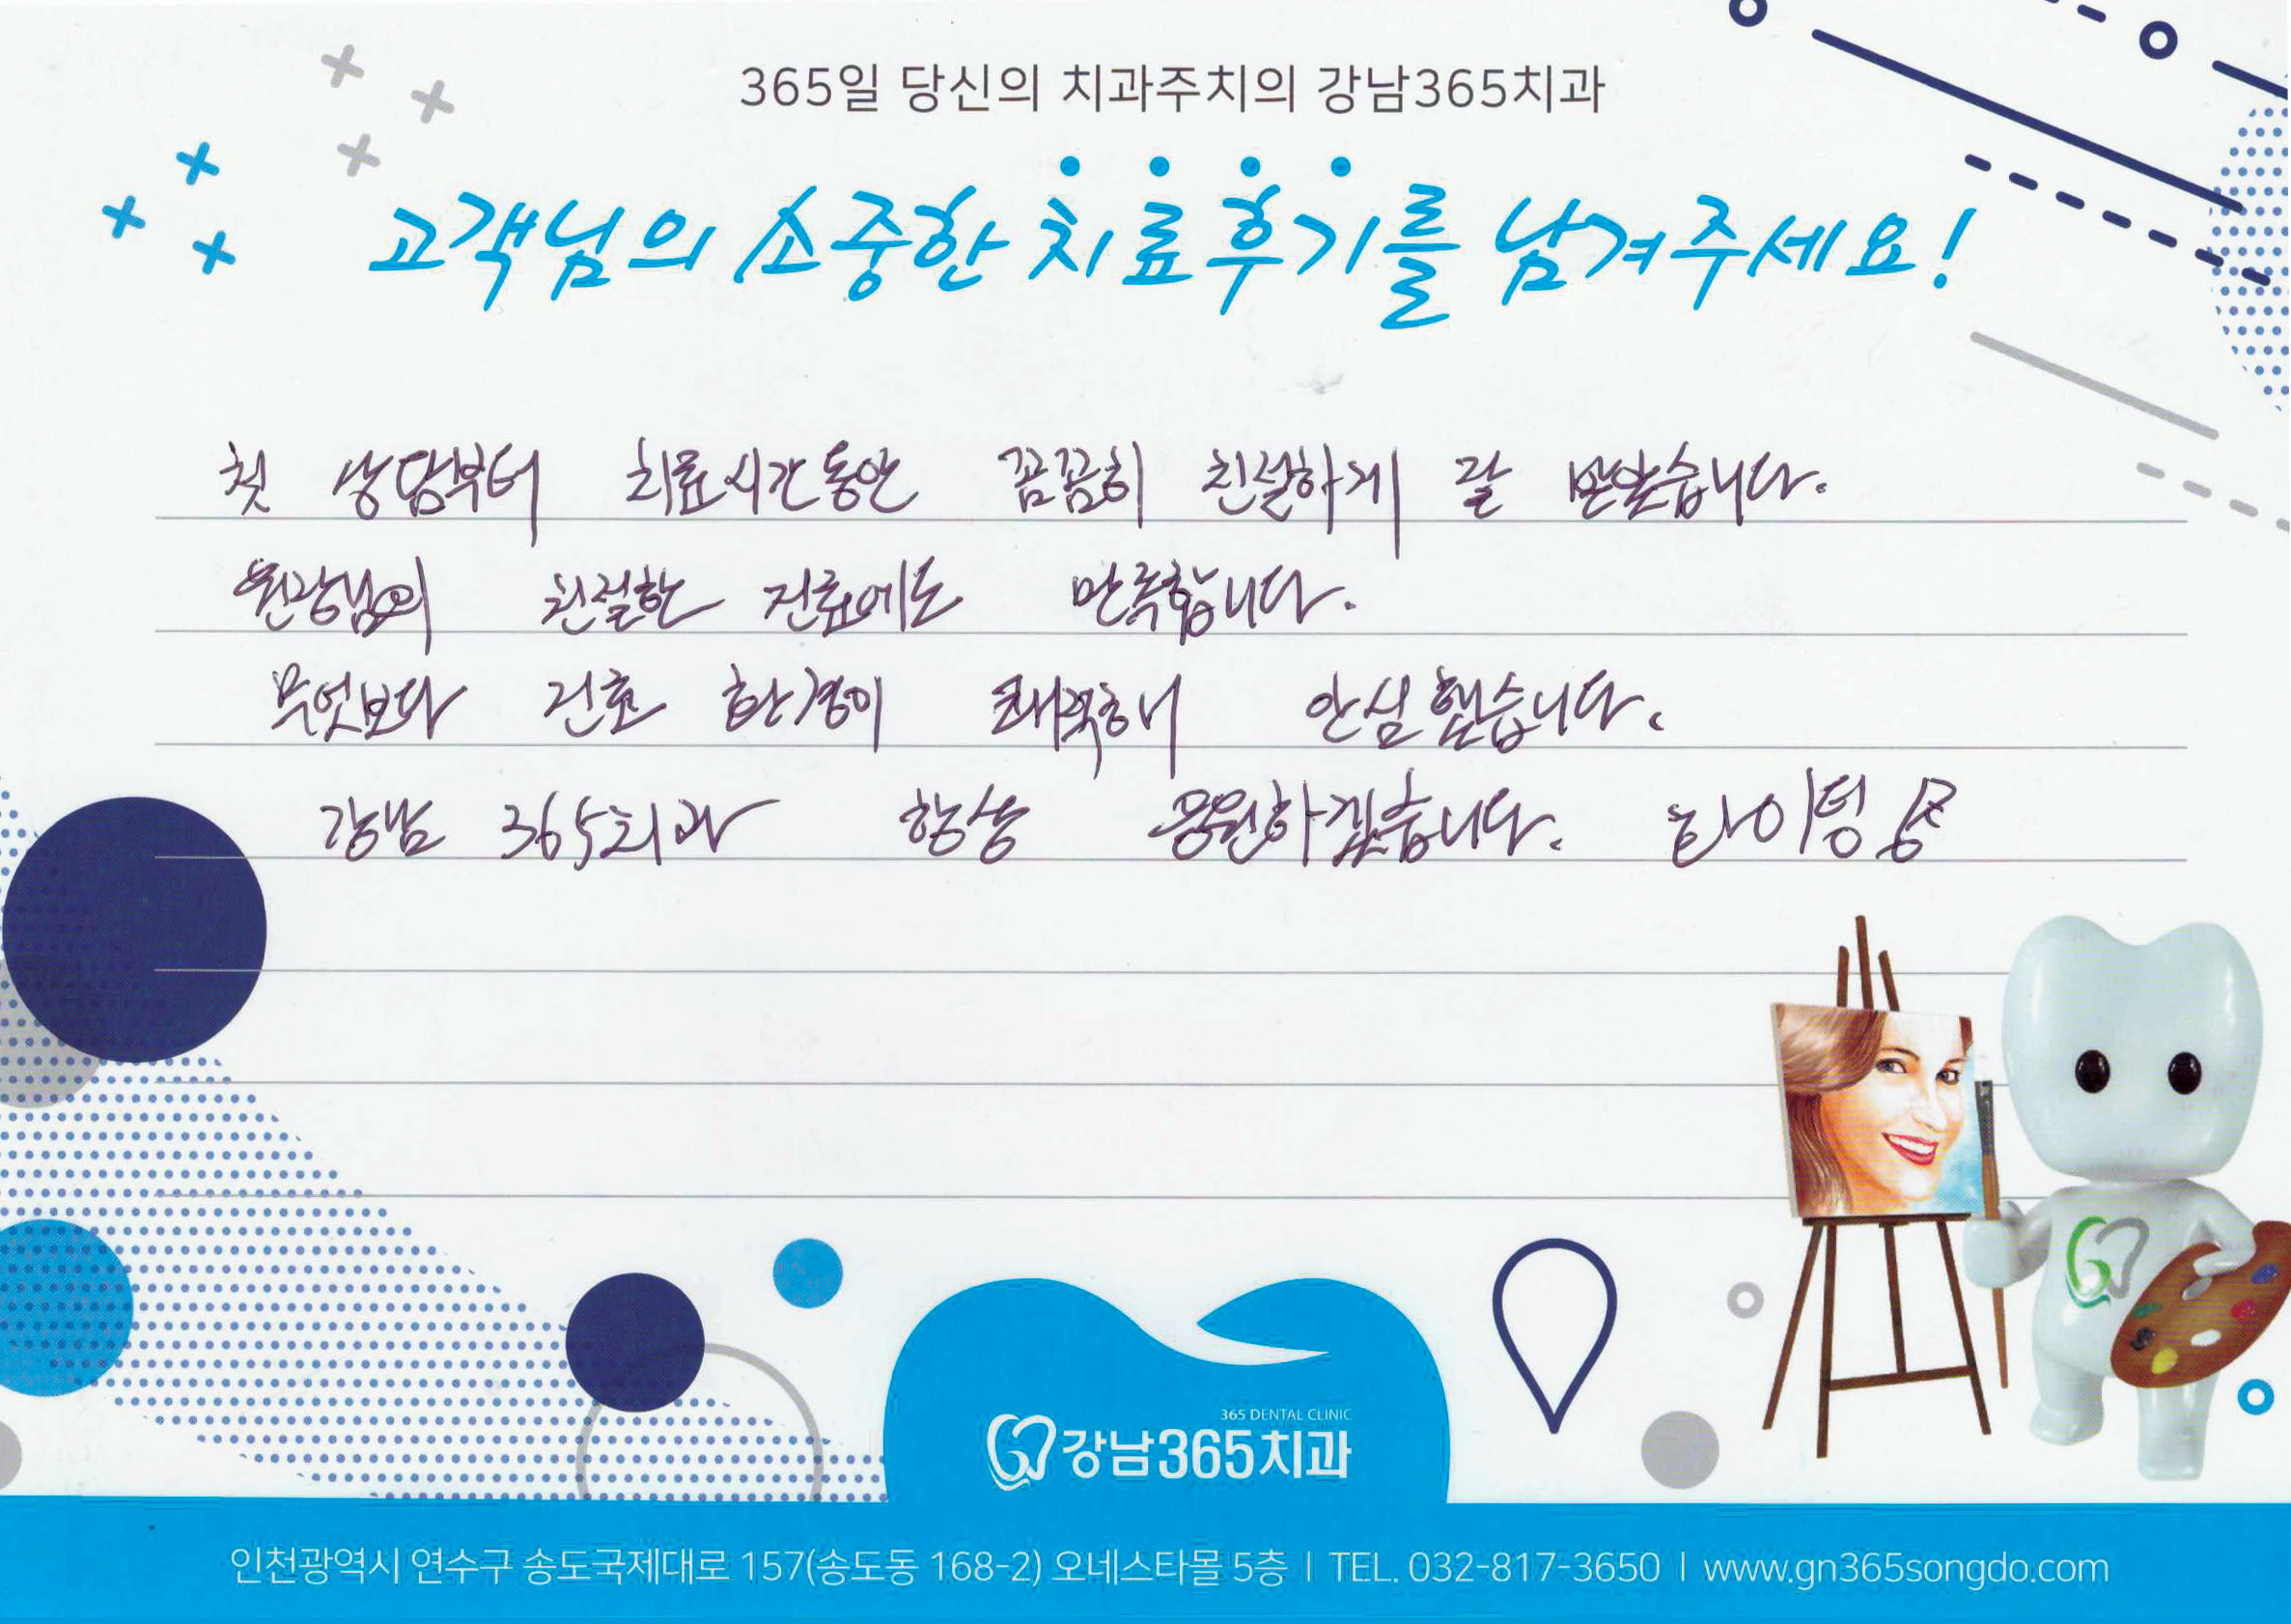 365일 당신의 치과주치의 강남365치과
고객님의 소중한 치료후기를 남겨주세요!
첫 상담부터 치료시간동안 꼼꼼히 친절하게 잘 받았습니다.
원장님의 친절한 진료에도 만족합니다.
무엇보다 진료 환경이 쾌적하니 안심했습니다.
강남 365치과 항상 응원하겠습니다. 화이팅
365 DENTAL CLINIC
강남365치과
인천광역시 연수구 송도국제대로 157(송도동 168-2) 오네스타몰 5층 | TEL. 032-817-3650 | www.gn365songdo.com